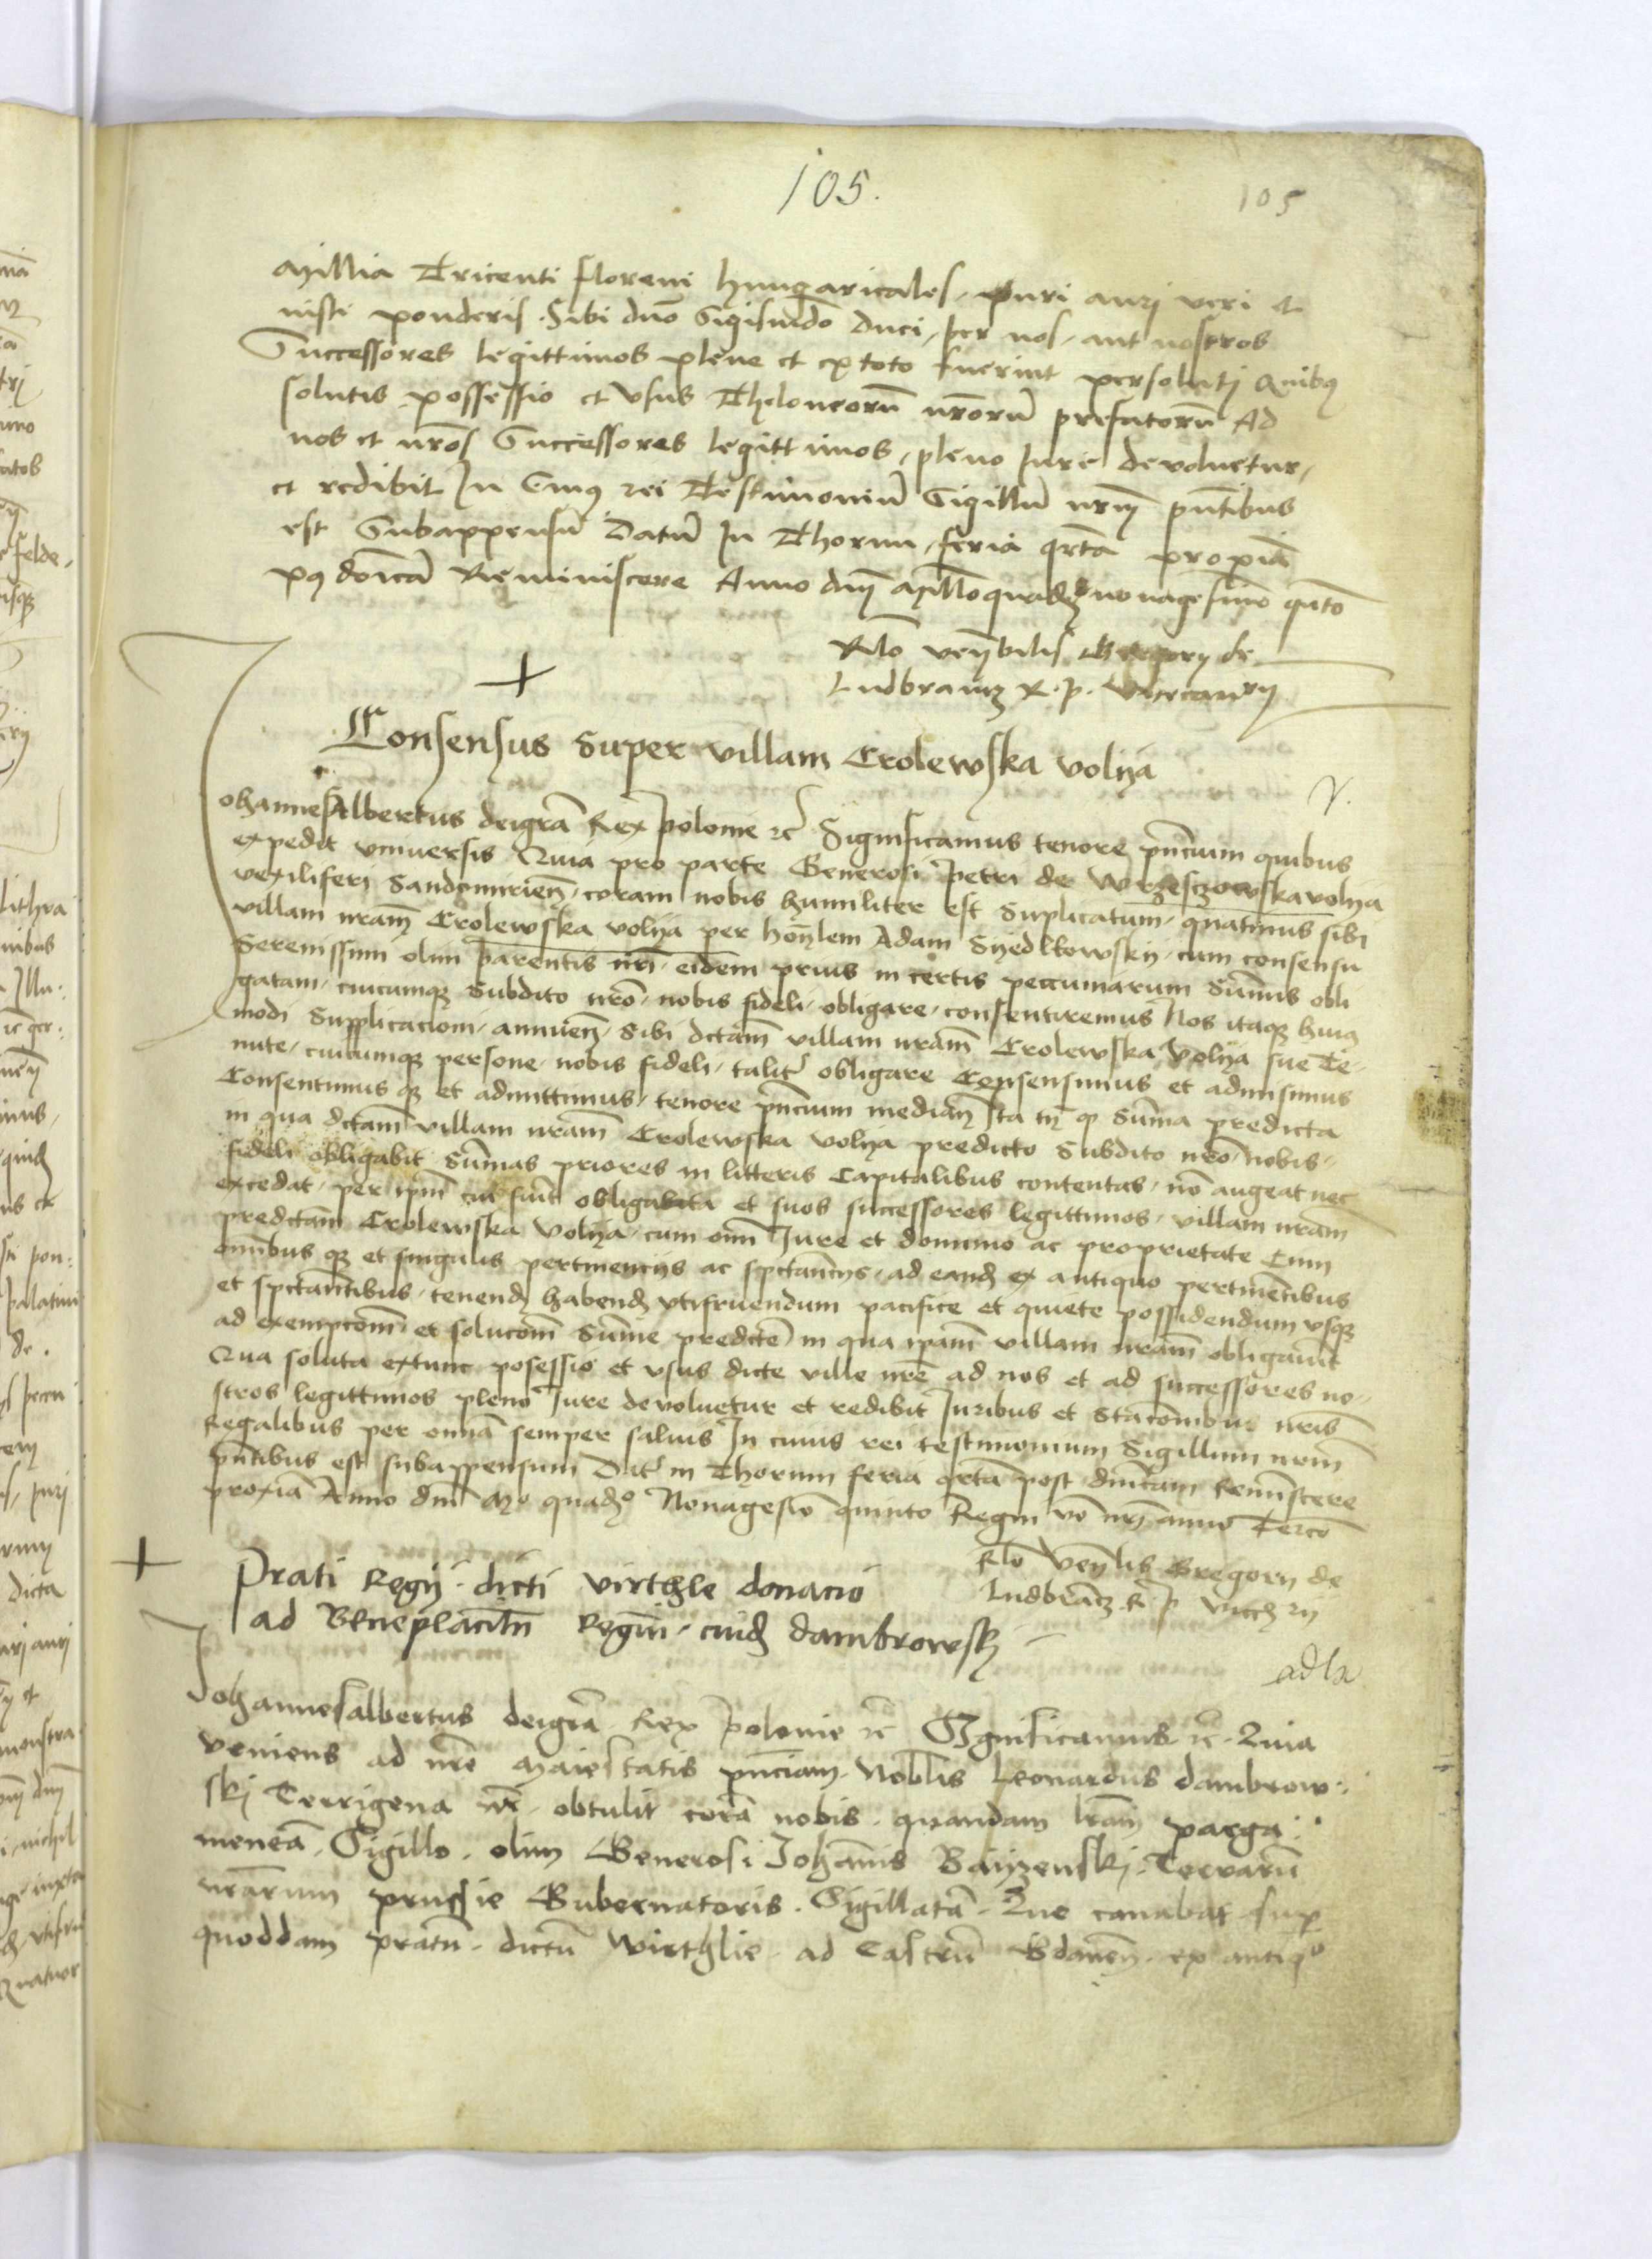 105.
105
Millia Tricenti floreni hungaricales, puri auri veri et
iusti ponderis. Sibi dno Sigismdo Duci, per nos, aut nostros
Successores legittimos plene et ex toto fuerint persoluti Quibus
solutis possessio et vsus Theloneorū nrorū prefatorū Ad
nos et nros Successores legittimos, pleno Iure devoluetur,
et redibit In Cuius rei Testimoniū Sigillū nrm pntibus
est Subappensū Datū In Thorun, feria qrta proxia
post doicā Reminiscere Anno dni Millo quadro nonagesimo qnto
Rlo venbilis Gregorij de
Ludbrancz R. p. vicecanrij
Consensus super villam Crolewska volya
Johannes Albertus dei gra Rex polonie etc Significamus tenore pncium quibus
expedit vniuersis Quia pro parte Generosi petri de Wrzesczowska volya
vexiliferi Sandomirien, coram nobis humiliter est Suplicatum, quatinus sibi
villam nram Crolewska volya per honlem Adam Syedltowsky, cum consensu
Serenissimi olim parentis nri, eidem prius in certis peccuniarum Summis obli
gatam, cuicumque Subdito nro, nobis fideli, obligare, consentiremus Nos itaque huius
modi Supplicacioni, annuen, Sibi dctam villam nram Crolewska Volya sue Te-
nute, cuicumque persone, nobis fideli, taliter obligare Consensimus et admisimus
Consentimus que et admittimus, tenore pncium median Ita tn quod Summa predicta
in qua dctam villam nram Crolewska volya predicto Subdito nro, nobis,
fideli obligabit Summas priores in litteris Capitalibus contentas, no augeat nec
excedat, per ipm cui fuit obligata et suos successores legittimos, villam nram
predictam Crolewska Volya, cum omni Iure et dominio ac proprietate Cum
omnibus que et singulis pertinencijs ac spctancijs, ad eand ex antiquo pertinentibus
et spctantibus, tenend habend vtifruendum pacifice et quiete possidendum vsque
ad exempcom et solucom Summe predicte in qua ipam villam nram obligauit
Qua soluta extunc posessio et vsus dicte ville nre ad nos et ad successores no-
stros legittimos pleno Iure devoluetur et redibit Iuribus et Stacombus nris
Regalibus per omnia semper saluis In cuius rei testimonium Sigillum nrm
pntibus est subappensum Dat in Thorun feria qrta post dnicam Reminiscere
proxia Anno dni Mo quado Nonagesio quinto Regni vo nri anno Tercio
Rlo venlis Gregorij de
Ludbrancz R p vicecrij
Prati Regij dicti virthle donacio
ad Beneplacitū Regiū cuid dambrowsky
ad lx
Johannesalbertus dei gra Rex polonie etc Significamus etc Quia
veniens ad nre Maiestatis pnciam Nobilis Leonardus dambrow-
skj Terrigena nr obtulit corā nobis quandam lram parga-
meneā Sigillo olim Generosi Johānis Bayzenskj Terrarū
nrarum prussie Gubernatoris Sigillatā Que canabat sup
quoddam pratū dictū Wirthlie ad Castrū Gdanen ex antiquo